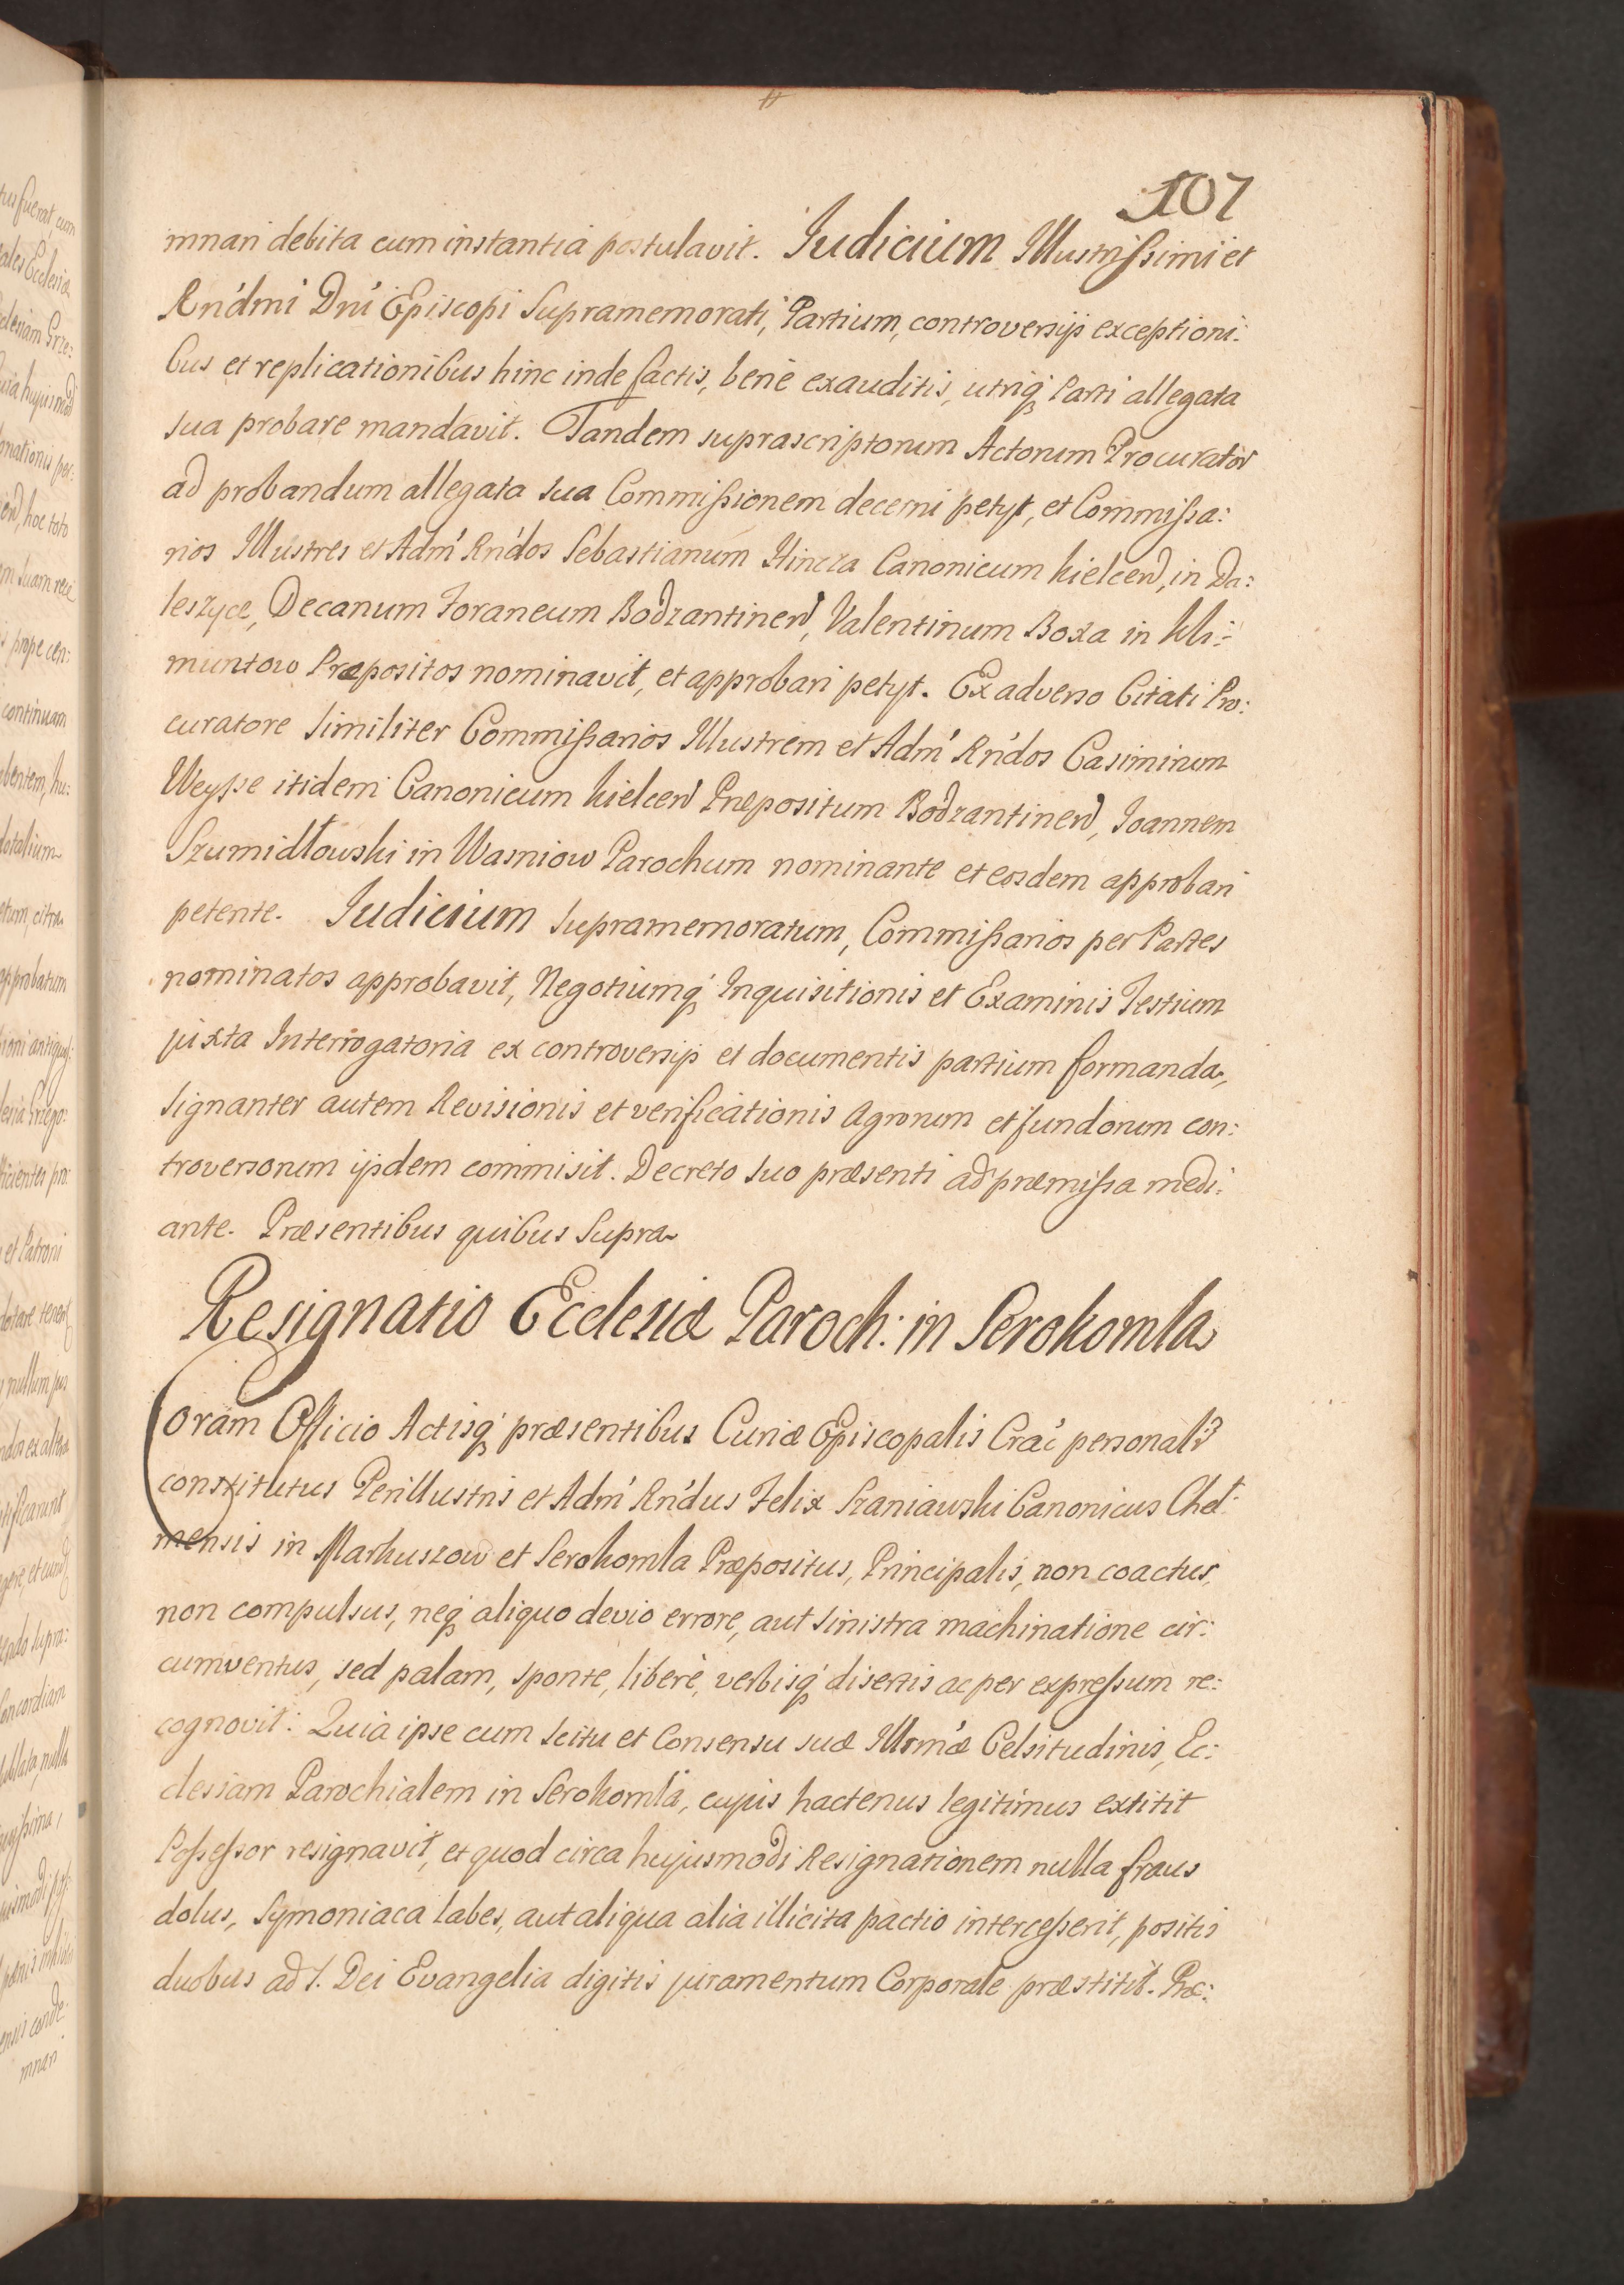 107
mnari debita cum instantia postulavit. Judicium Illustrissimi et
Rn̄dmi Dn̄i Episcopi Supramemorati, Partium, controversijs exceptioni:
bus et replicationibus hinc inde factis, bene exauditis, utriq̄ Parti allegata
sua probare mandavit. Tandem suprascriptorum Actorum Procurator
ad probandum allegata sua Commissionem decerni petyt, et Commissa:
rios Illustres et Adm̄ Rn̄dos Sebastianum Hincza Canonicum Kielcen̄, in Da:
leszyce, Decanum Foraneum Bodzantinen̄, Valentinum Boxa in Kli:
muntow Præpositos nominavit, et approbari petyt. Ex adverso Citati Pro:
curatore Similiter Commissarios Illustrem et Adm̄ Rn̄dos Casimirum
Weysse itidem Canonicum Kielcen̄ Præpositum Bodzantinen̄, Joannem
Szumidłowski in Wasniow Parochum nominante et eosdem approbari
petente. Judicium Supramemoratum, Commissarios per Partes
nominatos approbavit, Negotiumq̄ Inquisitionis et Examinis Testium
juxta Interrogatoria ex controversijs et documentis partium formanda,
Signanter autem Revisionis et verificationis Agrorum et fundorum con:
troversorum ijsdem commisit. Decreto suo præsenti ad præmissa medi:
ante. Præsentibus quibus Supra
Resignatio Ecclesiæ Paroch: in Serokomla
Coram Officio Actisq̄ præsentibus Curiæ Episcopalis Crac̄ personalr̄
constitutus Perillustris et Adm̄ Rn̄dus Felix Szaniawski Canonicus Cheł:
mensis in Markuszow et Serokomla Præpositus, Principalis, non coactus,
non compulsus, neq̄ aliquo devio errore, aut sinistra machinatione cir:
cumventus, sed palam, sponte, liberè, verbisq̄ disertis ac per expressum re:
cognovit: Quia ipse cum Scitu et Consensu suæ Illrmæ Celsitudinis, Ec:
clesiam Parochialem in Serokomla, cujus hactenus legitimus extitit
Possessor resignavit, et quod circa hujusmodi Resignationem nulla fraus
dolus, Symoniaca labes, aut aliqua alia illicita pactio intercesserit, positis
duobus ad S. Dei Evangelia digitis juramentum Corporale præstitit. Præ: